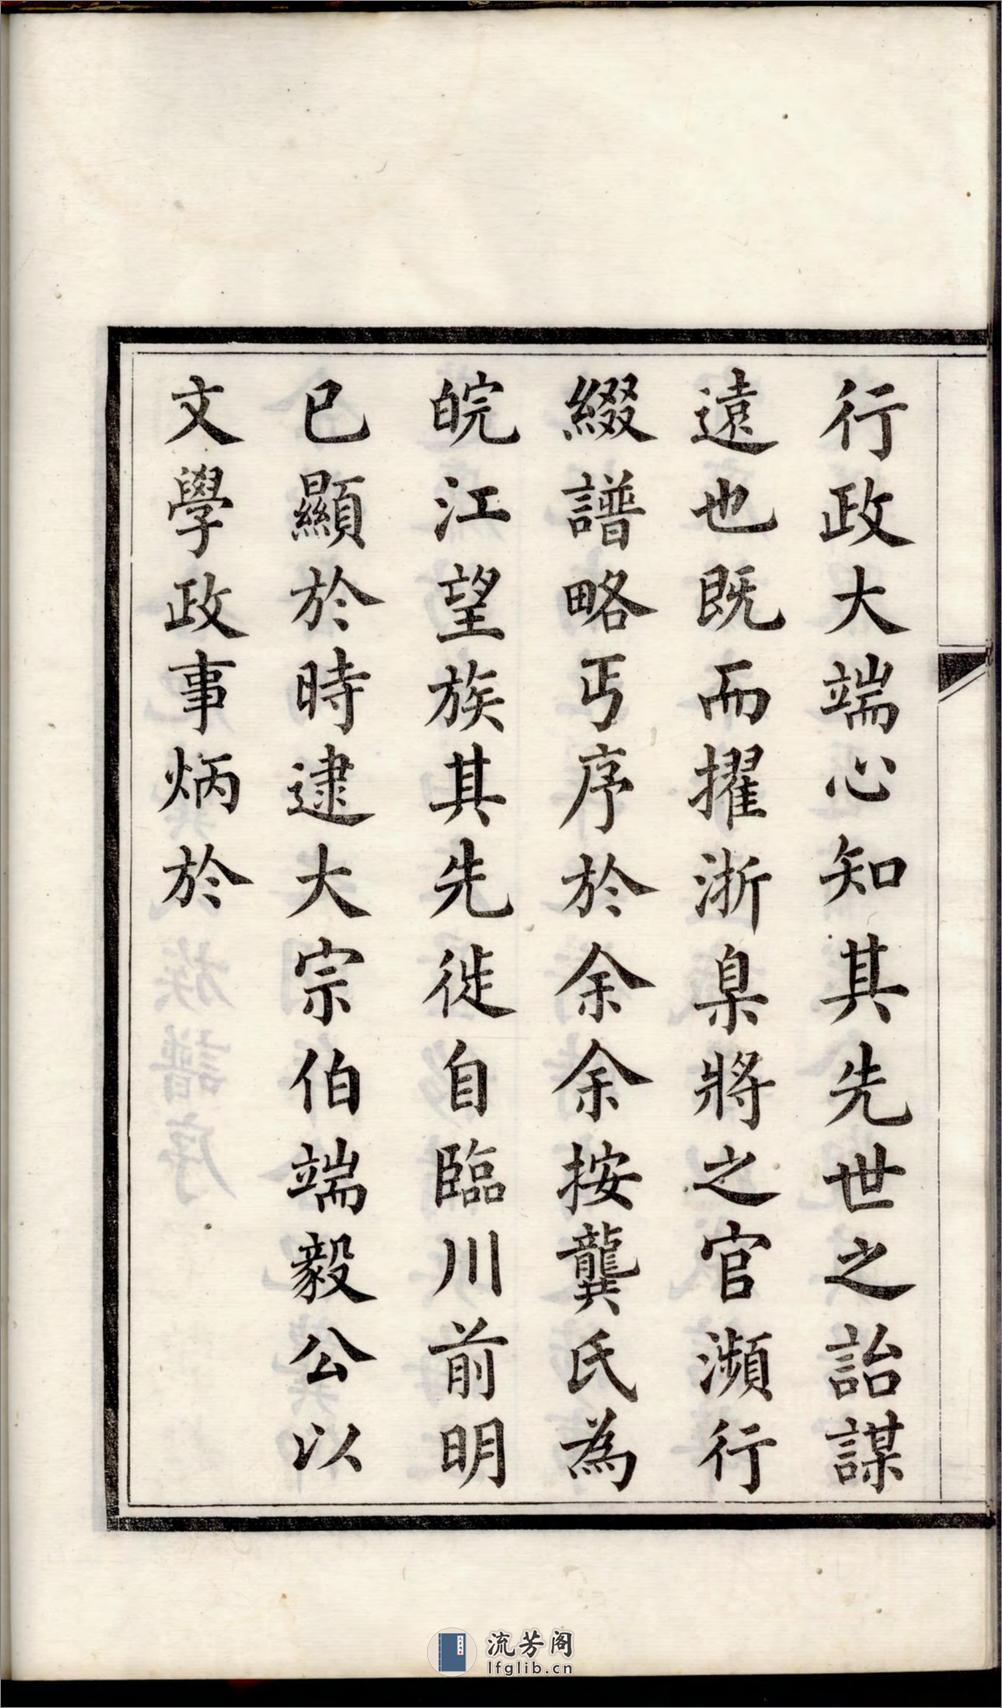 行政大端心知其先世之詒謀
遠也既而擢浙臬將之官瀕行
綴譜略丏序於余余按龔氏為
皖江望族其先徙自臨川前明
已顯於時逮大宗伯端毅公以
文學政事炳於
流芳阁
lfglib.cn